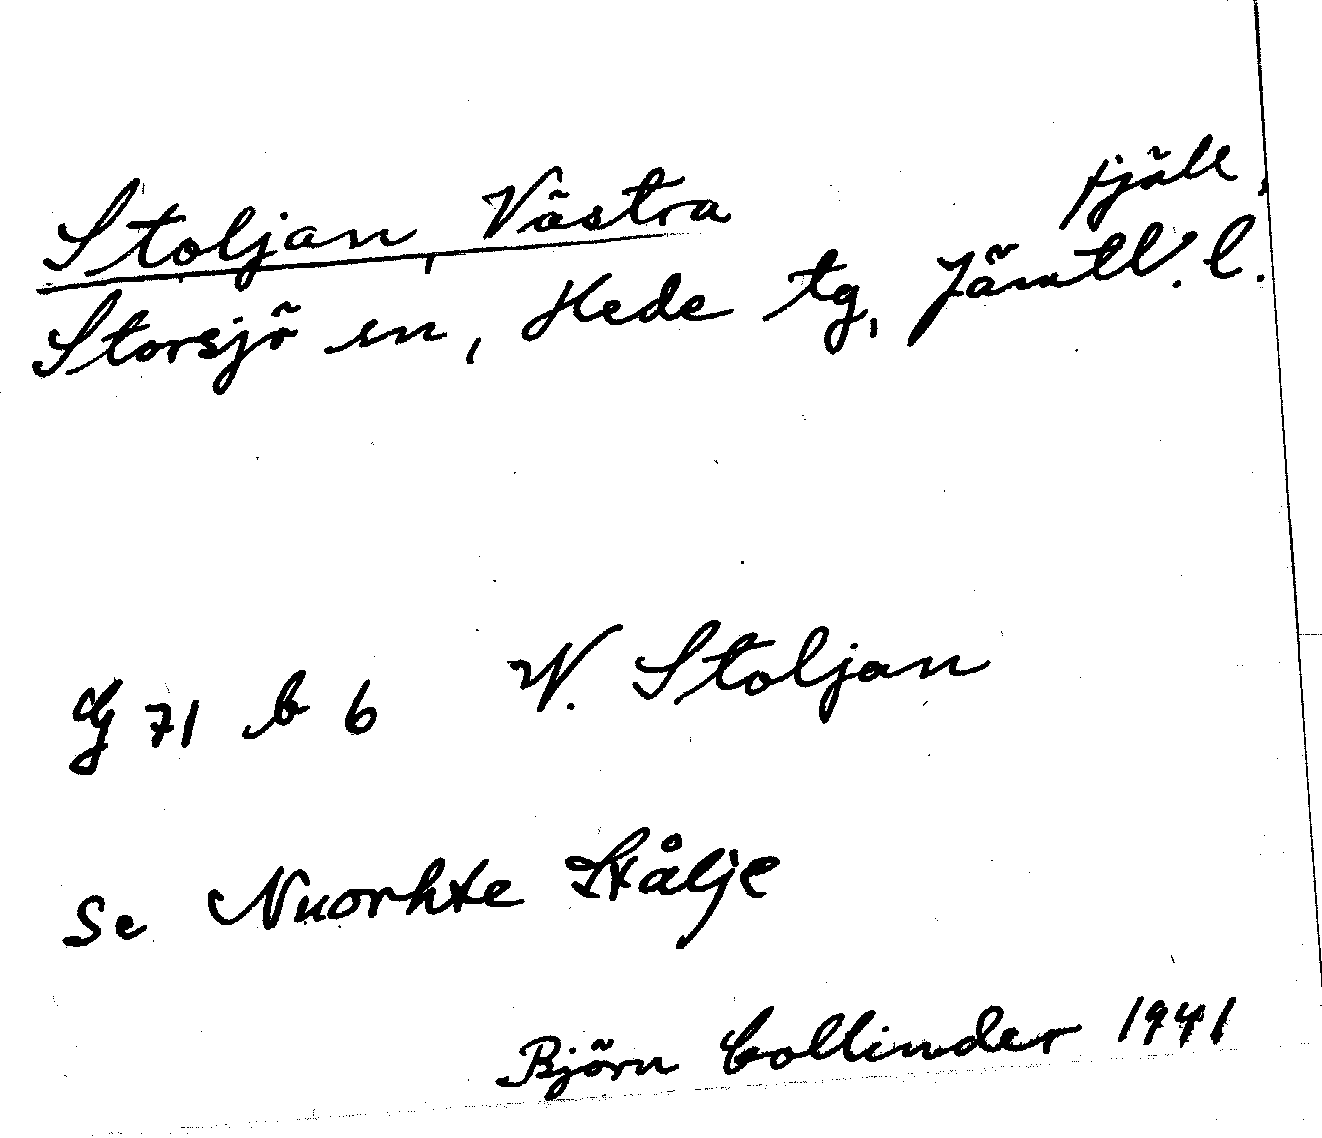 Stoljan, Västra fjäll,
Storsjö sn, Hede tg, Jämtl. l.
G 71 b 6 V. Stoljan
Se Nuorhte Ståljе
Björn Collinder 1941